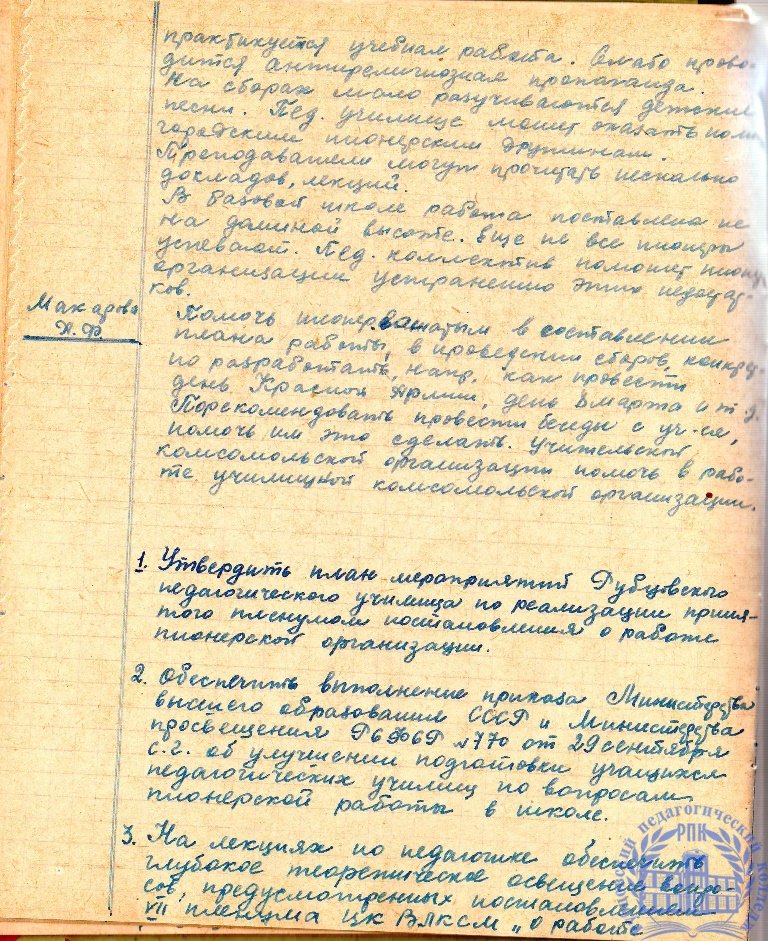 практикуется учебная работа. Слабо прово-
дится антирелигиозная пропаганда.
На сборах мало разучиваются детские
песни. Пед. училище может оказать
городским пионерским дружинам.
Преподаватели могут прочитать несколько
докладов, лекций.
В базовой школе работа поставлена не
на должной высоте. Еще не все пионеры
успевают. Пед. коллектив поможет
организации устранению этих недостат-
ков.
Макарова
П.Ф.
Помочь пионервожатым в составлении
плана работы, в проведении сборов, конкрет-
но разработать, напр. как провести
день Красной Армии, день 8 марта и т.д.
Порекомендовать провести беседы с уч-ся,
помочь им это сделать. Учительской
комсомольской организации помочь в рабо-
те училищной комсомольской организации.
1. Утвердить план мероприятий Рубцовского
педагогического училища по реализации приня-
того пленумом постановления о работе
пионерской организации.
2. Обеспечить выполнение приказа Министерства
высшего образования СССР и Министерства
просвещения РСФСР №770 от 29 сентября
с.г. об улучшении подготовки учащихся
педагогических училищ по вопросам
пионерской работы в школе.
3. На лекциях по педагогике обеспечить
глубокое теоретическое освещение вопро-
сов, предусмотренных постановлением
VII пленума ЦК ВЛКСМ „О работе
педагогический колледж
РПК